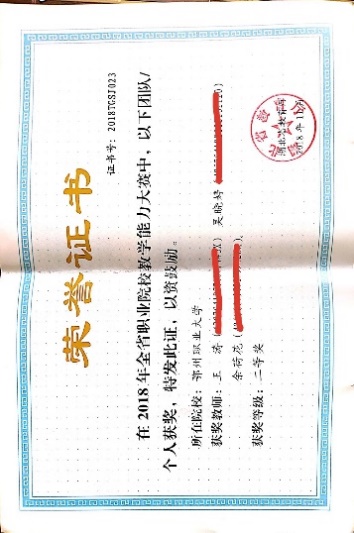 荣誉证书
证书号：2018TGSJ023
在2018年全省职业院校教学能力大赛中，以下团队/
个人获奖，特发此证，以资鼓励。
所在院校：鄂州职业大学
获奖教师：王涛（ 吴晓婷
余荷花（
获奖等级：二等奖
湖北省教育厅